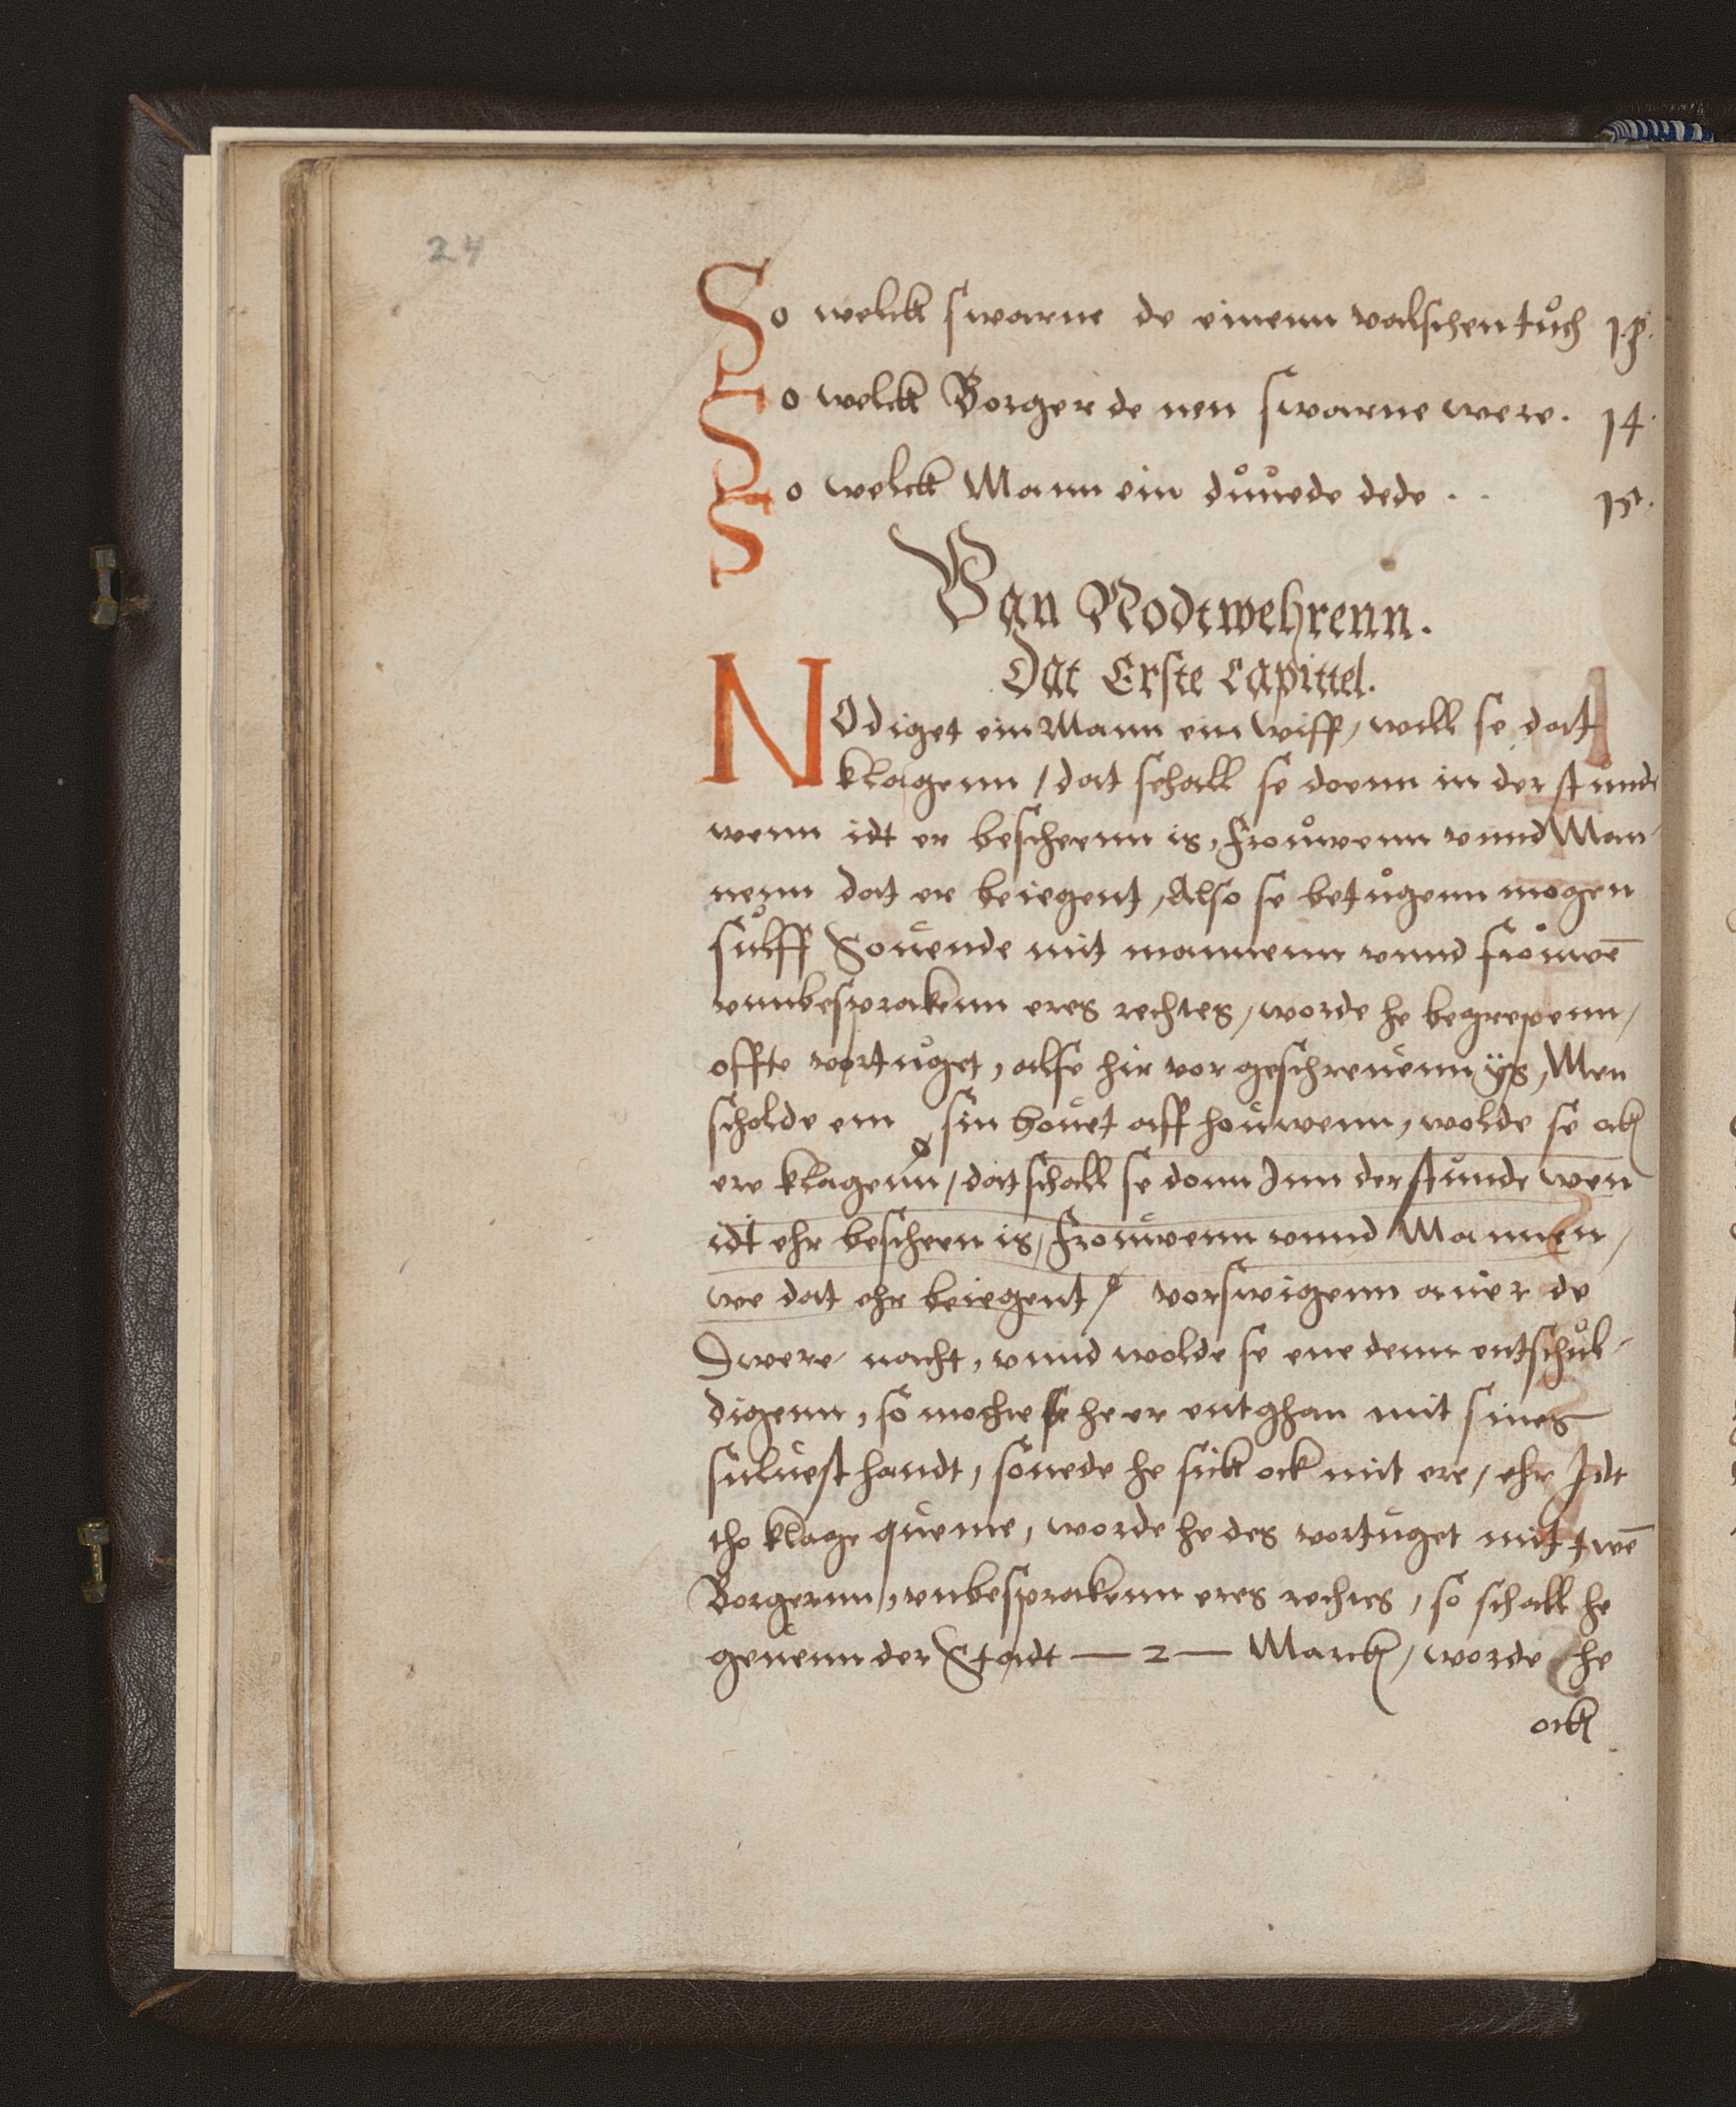 24
So welck swarne de einenn valschen tůch 13.
So welck Borger de nen swarne were. 14.
So welck Mann ein důuede dede . . 15.
S
Van Nodtwehrenn.
Dat Erste Capittel.
NOdiget ein Mann ein wiff, will se dat
klagenn / dat schall se doenn in der stunde
wenn idt er bescheenn is, frouwenn vnnd Man-
nenn dat er beiegent, Also se betůgenn mogen
sůlff Souende mit mannenn vnnd frouwē
vnnbesprakenn eres rechtes, worde he begrepenn,
offte vortůget, alse hir vor geschreuenn ys, Men
scholde em sin houet aff houwenn, wolde se ock
ere klagenn, dat schall se donn Inn der stunde wen
idt ehr bescheen is, frouwenn vnnd Mannen,
we dat ehr beiegent, vorswigenn auer de
dwere nacht, vnnd wolde se ene denn entschůl-
digenn, so mochte se he er entghan mit sines
suluest handt, sonede he sick ock mit ere, ehr Idt
tho klage queme, worde he des vortuget mit twē
Borgernn, vnbesprakenn eres rechtes, so schall he
geuenn der Stadt — 2 — Marck, worde he
ock